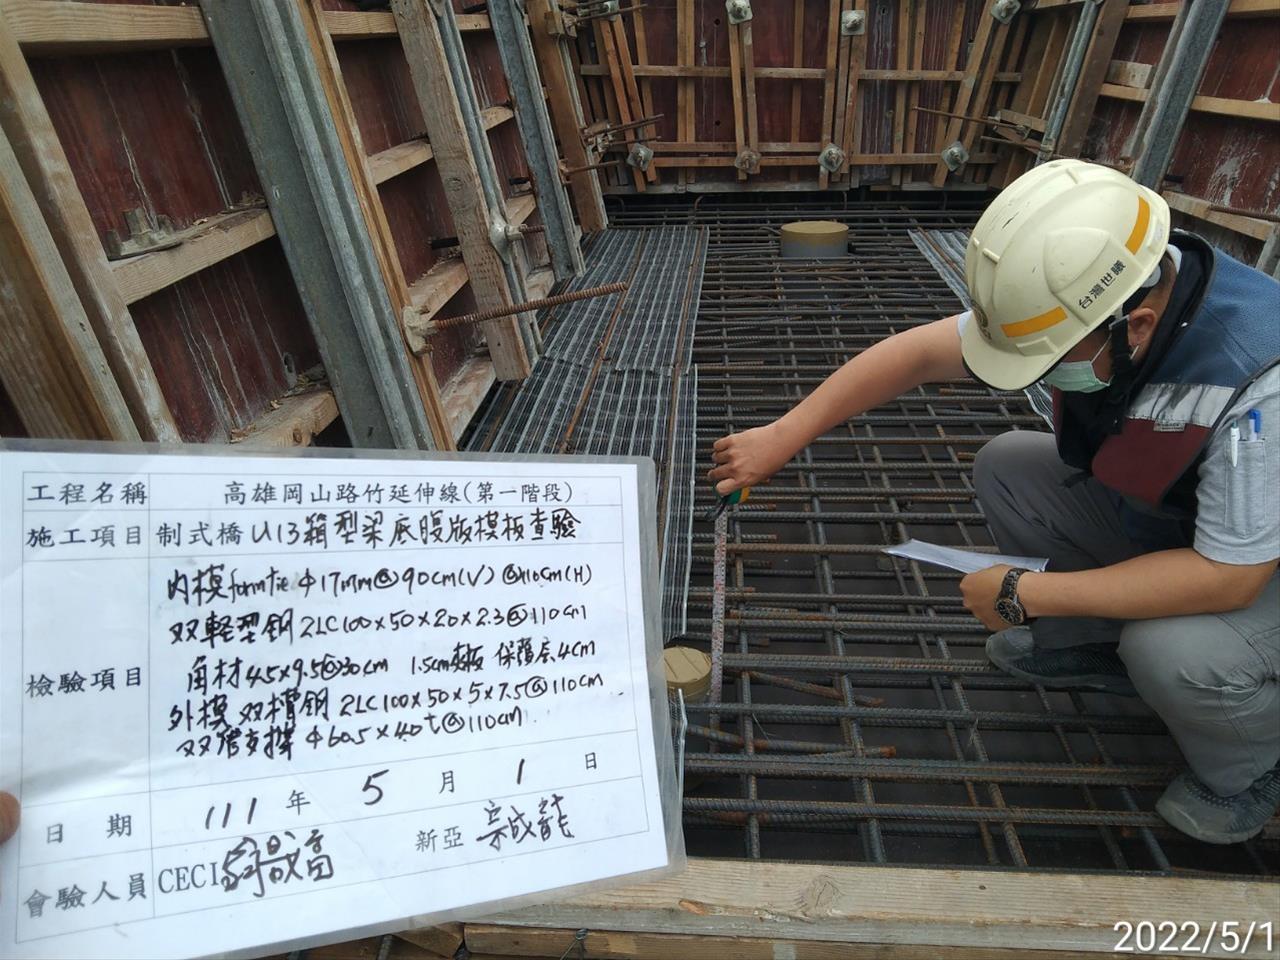 台灣世曦
工程名稱 高雄岡山路竹延伸線(第一階段)
施工項目 制式橋U13箱型梁底腹版模板查驗
檢驗項目
內模formtie φ17mm@90cm(V) @110cm(H)
双輕型鋼2LC100×50×20×2.3@110cm
角材4.5×9.5@30cm 1.5cm 保護层4cm
外模 双槽鋼 2LC100×50×5×7.5@110cm
双管支撐 φ60.5×4.0t@110cm
日期 111年 5月 1日
會驗人員 CECI 新亞
2022/5/1